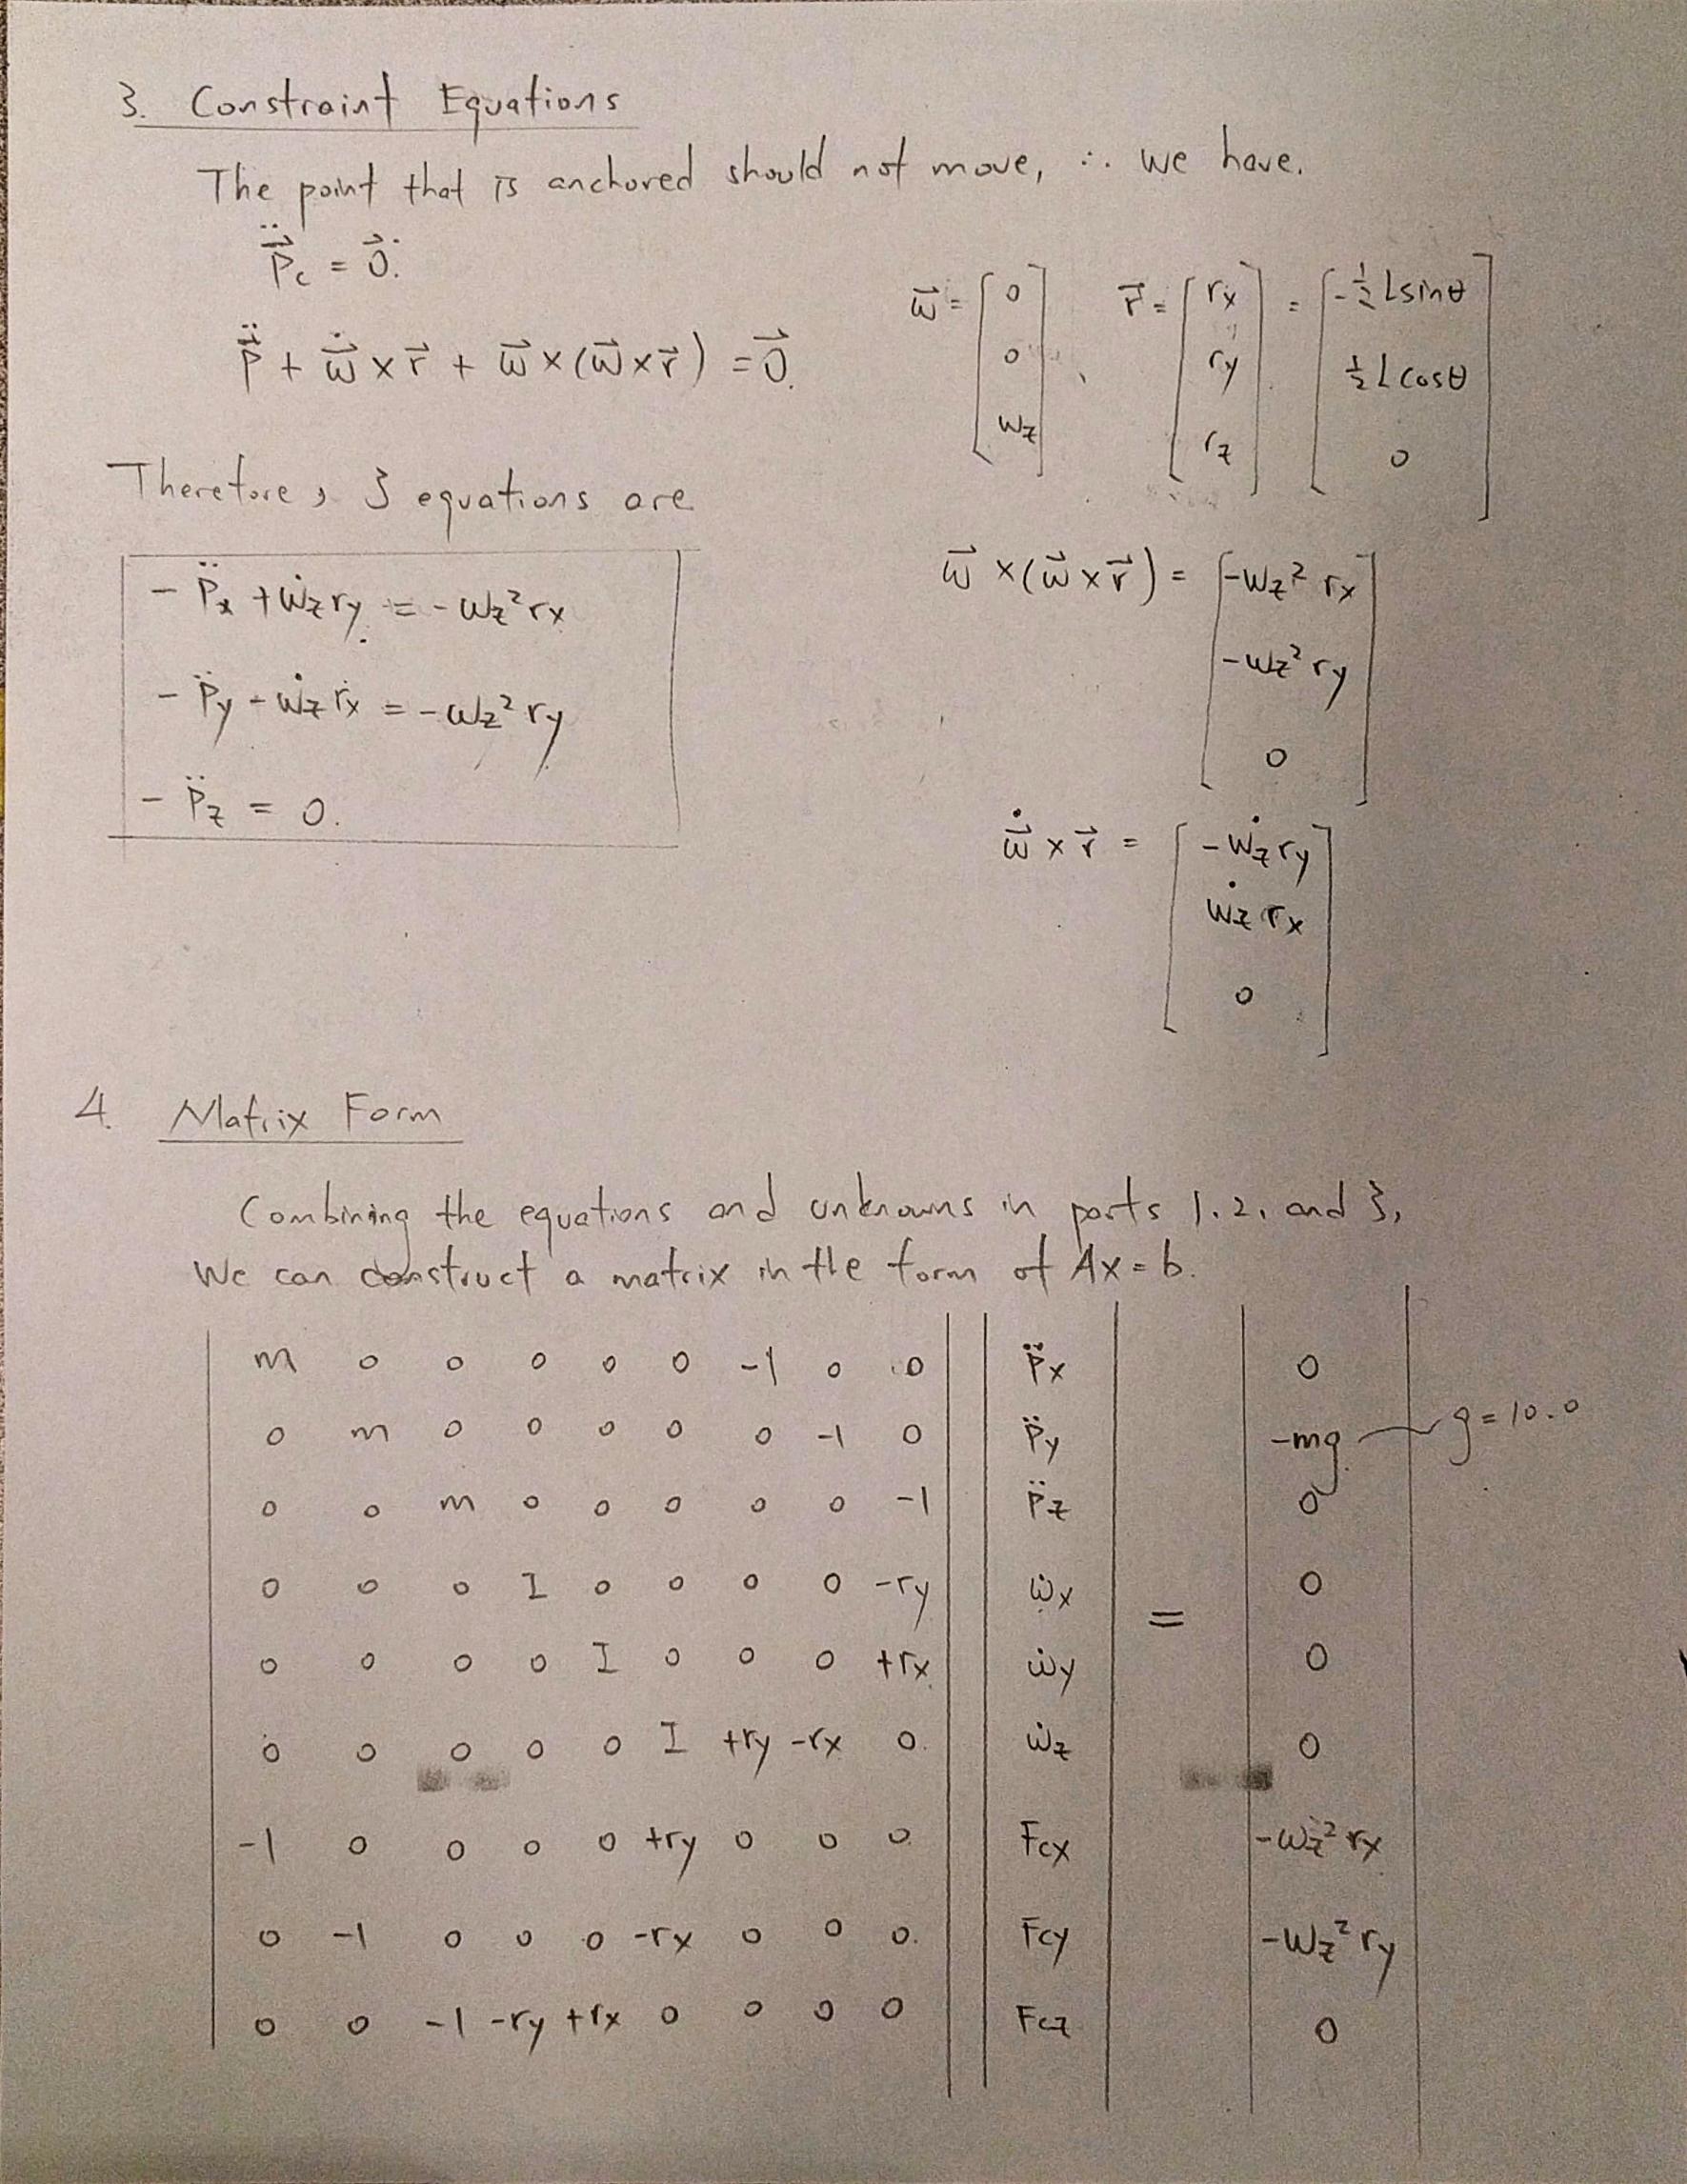 3. Constraint Equations
The point that is anchored should not move, ∴ we have.
p̈⃗c = 0⃗.
p̈⃗ + ω̇⃗ × r⃗ + ω⃗ × (ω⃗ × r⃗) = 0⃗.
ω⃗ = [0 0 ωz], r⃗ = [rx ry rz] = [-½ L sinθ ½ L cosθ 0]
Therefore, 3 equations are
- p̈x + ω̇z ry = - ωz² rx
- p̈y - ω̇z rx = - ωz² ry
- p̈z = 0.
ω⃗ × (ω⃗ × r⃗) = [-ωz² rx -ωz² ry 0]
ω̇⃗ × r⃗ = [-ω̇z ry ω̇z rx 0]
4. Matrix Form
Combining the equations and unknowns in parts 1, 2, and 3,
We can construct a matrix in the form of Ax = b.
m 0 0 0 0 0 -1 0 0 p̈x 0
0 m 0 0 0 0 0 -1 0 p̈y -mg g = 10.0
0 0 m 0 0 0 0 0 -1 p̈z 0
0 0 0 I 0 0 0 0 -ry ω̇x 0
0 0 0 0 I 0 0 0 +rx ω̇y = 0
0 0 0 0 0 I +ry -rx 0. ω̇z 0
-1 0 0 0 0 +ry 0 0 0. Fcx -ωz² rx
0 -1 0 0 0 -rx 0 0 0. Fcy -ωz² ry
0 0 -1 -ry +rx 0 0 0 0 Fcz 0